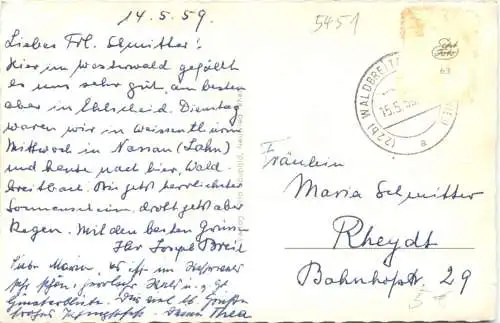 14.5.59.
5451
Liebes Frl. Schmitter!
Hier im Westerwald gefällt
es uns sehr gut, am besten
aber in Ehlscheid. Dienstag
waren wir in Weissenthurm
Mittwoch in Nassau (Lahn)
und heute nach hier, Wald-
breitbach. Bis jetzt herrlichster
Sonnenschein, droht jetzt aber
Regen. Mit den besten Grüssen
Ihr Josef Breil
Liebe Maria, es ist im Westerwald
sehr schön, Wald u.
Ginsterblüte.
Thea
Echt
Foto
63
(22b) WALDBREIT
15.5.59
a
Fräulein
Maria Schmitter
Rheydt
Bahnhofstr. 29